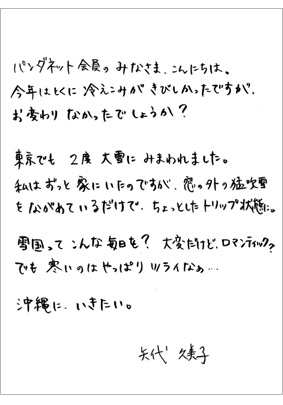 パンダネット会員の みなさま、こんにちは。
今年はとくに 冷えこみが きびしかったですが、
お変わり なかったでしょうか？
東京でも 2度 大雪に みまわれました。
私は ずっと 家にいたのですが、窓の外の猛吹雪
をながめているだけで、ちょっとしたトリップ状態に。
雪国って こんな毎日を？ 大変だけど、ロマンティック？
でも 寒いのは やっぱり ツライなぁ…
沖縄に、いきたい。
矢代 久美子